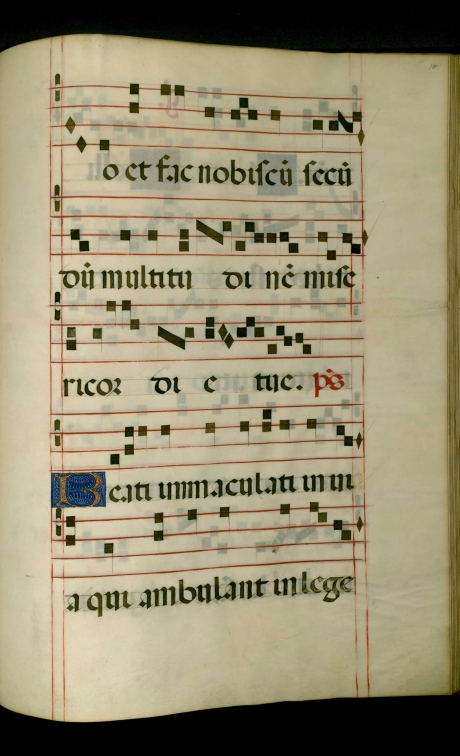 o et fac nobiscū secū
dū multitu di nē mise
ricor di e tue. ps̄
Beati immaculati in ui
a qui ambulant in lege